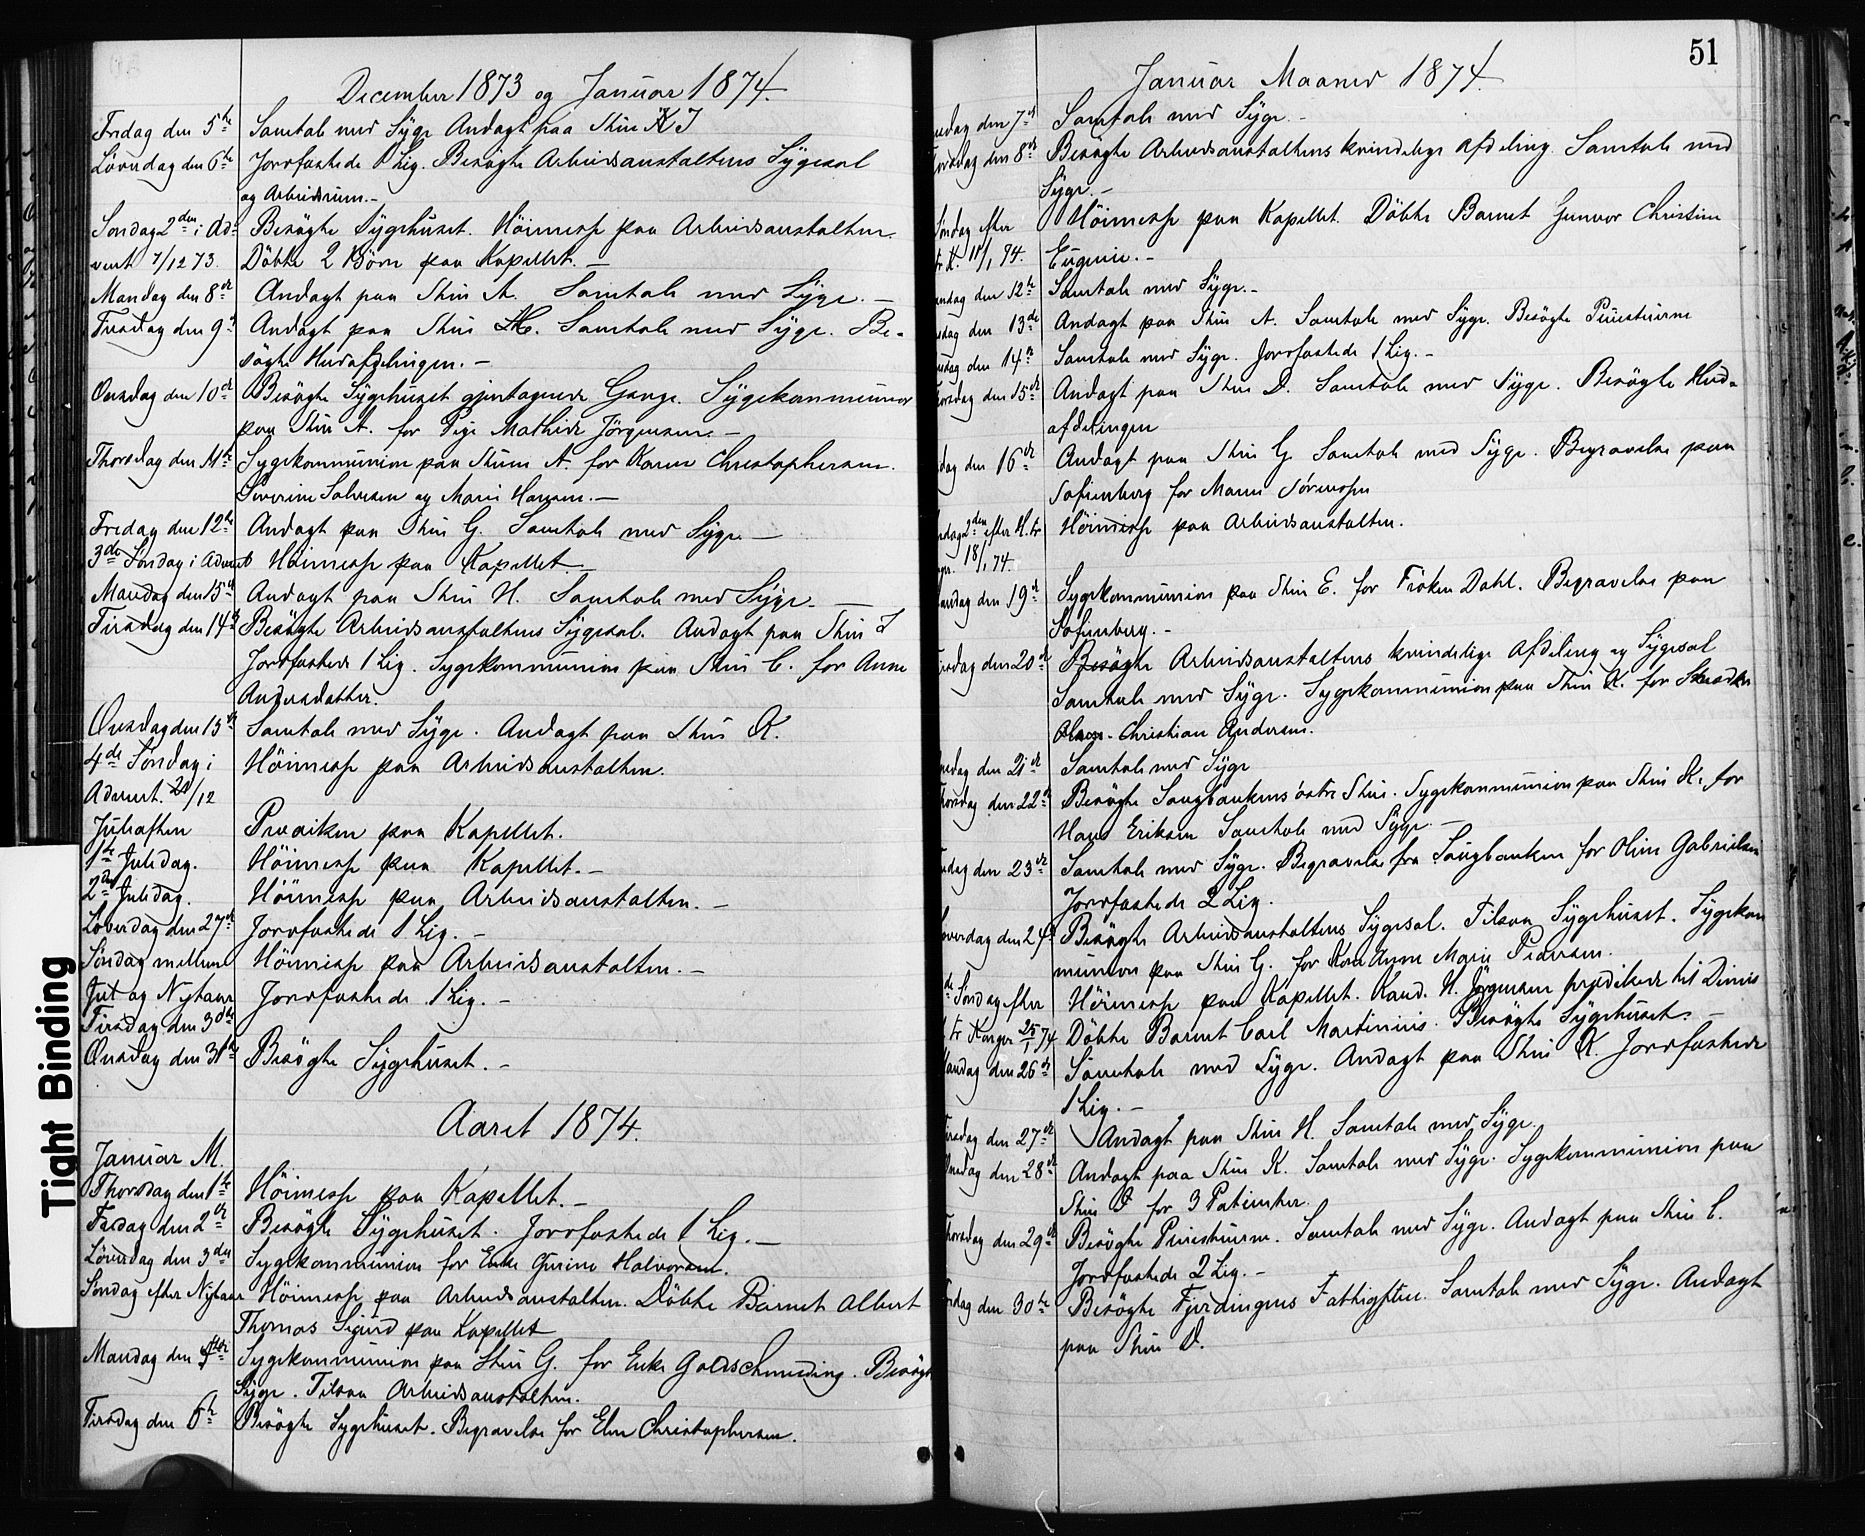 December 1873 og Januar 1874.
Fredag den 5te Samtale med Syge Andagt paa Stue I
Löverdag den 6te Jordfæstede 1 Lig. Besögte Arbeidsanstaltens Sygesal
og Arbeidsrum.-
Söndag 2den i Ad- Besögte Sygehuset. Höimesse paa Arbeidsanstalten.
vent 7/12 73. Döbte 2 Börn paa Kapellet.-
Mandag den 8de Andagt paa Stue A. Samtale med Syge.-
Tirsdag den 9de Andagt paa Stue H. Samtale med Syge. Be-
sögte Hudafdelingen.-
Onsdag den 10de Besögte Sygehuset gjentagende Gange. Sygekommunion
paa Stue A. for Pige Mathilde Jörgensen.-
Thorsdag den 11te Sygekommunion paa Stuen A. for Karen Christophersen.
Severine Salvesen og Marie Hansen.-
Fredag den 12te Andagt paa Stue G. Samtale med Syge-
3de Söndag i Advent Höimesse paa Kapellet.-
Mandag den 15de Andagt paa Stue H. Samtale med Syge.-
Tirsdag den 14de Besögte Arbeidsanstaltens Sygesal. Andagt paa Stue I
Jordfæstede 1 Lig. Sygekommunion paa Stue C. for Anne
Andersdatter.
Onsdag den 15de Samtale med Syge. Andagt paa Stue K.
4de Söndag i Höimesse paa Arbeidsanstalten.
Advent. 21/12
Juleaften Præiken paa Kapellet.
1ste Juledag. Höimesse paa Kapellet.-
2den Juledag. Höimesse paa Arbeidsanstalten.-
Löverdag den 27de Jordfæstede 1 Lig.-
Söndag mellem Höimesse paa Arbeidsanstalten.-
Jul og Nytaar Jordfæstede 1 Lig.-
Tirsdag den 30te
Onsdag den 31te Besögte Sygehuset.-
Aaret 1874.
Januar M.
Thorsdag den 1ste Höimesse paa Kapellet.-
Fredag den 2den Besögte Sygehuset. Jordfæstede 1 Lig.-
Löverdag den 3den Sygekommunion for Enke Gurine Halvorsen.
Söndag efter Nytaar Höimesse paa Arbeidsanstalten. Döbte Barnet Albert
Thomas Sigurd paa Kapellet
Mandag den Sygekommunion paa Stue G. for Enke Goldschmeding. Besögte
Syge. Tilsaa Arbeidsanstalten.
Tirsdag den 6te Besögte Sygehuset. Begravelse for Elen Christophersen.
51
Januar Maaned 1874.
dag den 7de Samtale med Syge.-
Thorsdag den 8de Besögte Arbeidsanstaltens kvindelige Afdeling. Samtale med
Syge.-
Söndag efter Höimesse paa Kapellet. Döbte Barnet Gunvor Christine
K. 11/1 74. Eugenie.-
Mandag den 12te Samtale med Syge.-
dag den 13de Andagt paa Stue A. Samtale med Syge. Besögte Pinestuerne
dag den 14de Samtale med Syge. Jordfæstede 1 Lig.-
Thorsdag den 15de Andagt paa Stue D. Samtale med Syge. Besögte Hud-
afdelingen
dag den 16de Andagt paa Stue G. Samtale med Syge. Begravelse paa
Sofienberg for Maren Sörensen
Söndag 2den efter H. tr Höimesse paa Arbeidsanstalten.
18/1 74.
Mandag den 19de Sygekommunion paa Stue E. for Fröken Dahl. Begravelse paa
Sofienberg.-
Tirsdag den 20de Besögte Arbeidsanstaltens kvindelige Afdeling og Sygesal
Samtale med Syge. Sygekommunion paa Stue K. for
Olsen. Christian Andersen.
Onsdag den 21de Samtale med Syge
Thorsdag den 22de Besögte Saugbankens östre Stue. Sygekommunion paa Stue K. for
Hans Eriksen Samtale med Syge.-
dag den 23de Samtale med Syge. Begravelse fra Saugbanken for Oline Gabrielsen
Jordfæstede 2 Lig.
Löverdag den 24de Besögte Arbeidsanstaltens Sygesal. Tilsaa Sygehuset. Sygekom
munion paa Stue G. for Anne Marie Pedersen.
Söndag efter Höimesse paa Kapellet. Kand. H. Jörgensen prædikede til Dimis
tr Konger 25/1 74 Döbte Barnet Carl Martinius. Besögte Sygehuset.-
Mandag den 26de Samtale med Syge. Andagt paa Stue K. Jordfæstede
1 Lig.-
Tirsdag den 27de Andagt paa Stue H. Samtale med Syge.
Onsdag den 28de Andagt paa Stue K. Samtale med Syge. Sygekommunion paa
Stue D for 3 Patienter.
Thorsdag den 29de Besögte Pinestuerne. Samtale med Syge. Andagt paa Stue C.
Jordfæstede 2 Lig.-
Fredag den 30te Besögte Fjerdingens Fattigstue. Samtale med Syge. Andagt
paa Stue D.
Tight Binding